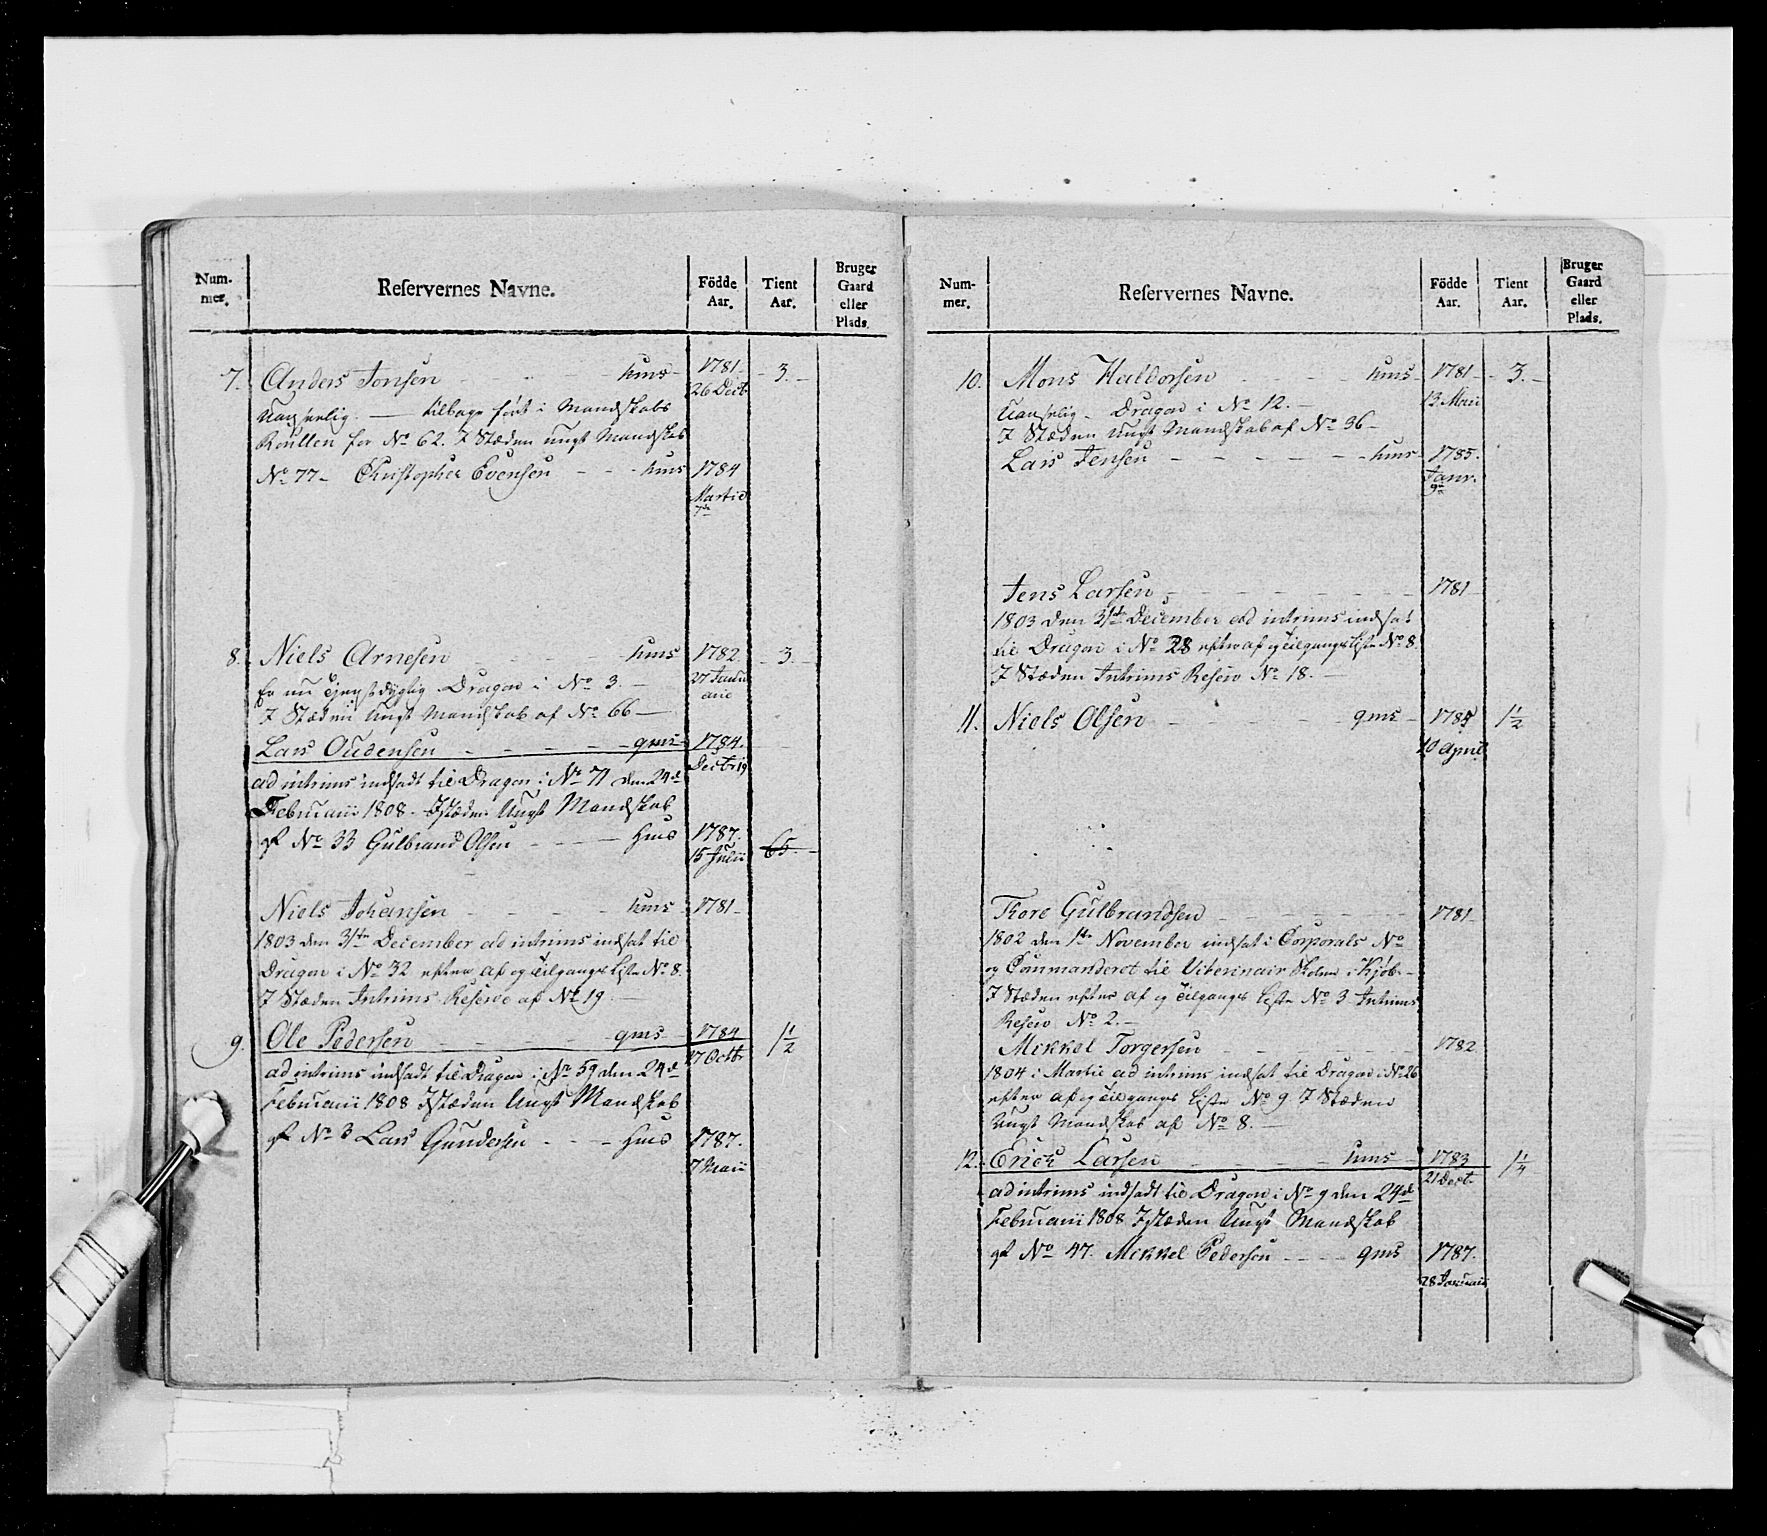 Num-
mer.
Reservernes Navne.
Födde
Aar.
Tient
Aar.
Bruger
Gaard
eller
Plads.
7. Anders Jonsen - - - - hms - 1781 - 3. -
26 Decb
tilbage ført i Mandskabs
Roullen for No 62. I Stæden ungt Mandskab
No 77 - Christopher Evensen - - - hms 1784
Martii
7de
8. Niels Arnesen - - - - hms 1782 - 3 -
27 Janu
arii
Er nu Dragon i No 3. -
I Stæden Ungt Mandskab af No 66 -
Lars Oudensen - - - - - gms - 1784.
Decbr 19
ad intrims indsadt til Dragon i No 71 den 24de
Februarii 1808. Istæden Ungt Mandskab
af No 33 Gulbrand Olsen - - - - hms 1787.
15 Julii 65. -
Niels Johansen - - - - hms - 1781 -
1803 den 31te December ad intrims indsat til
Dragon i No 32 efter af og Tilgangs Liste No 8.
I Stæden Intrims Reserve af No 19 -
9. Ole Pedersen - - - - gms - 1784 1 1/2
17 Octbr
ad intrims indsadt til Dragon i No 59 den 24de
Februarii 1808 Istæden Ungt Mandskab
af No 3 Lars Gundersen - - - - hms 1787.
7 Maii
Num-
mer.
Reservernes Navne.
Födde
Aar.
Tient
Aar.
Bruger
Gaard
eller
Plads.
10. Mons Haldorsen - - - - hms - 1781 - 3. -
13. Maii
Dragon i No 12. -
I Stæden Ungt Mandskab af No 36 -
Lars Jensen - - - - - - hms - 1785.
Janr.
Jens Larsen - - - - - - 1781
1803 den 31te December ad intrims indsat
til Dragon i No 28 efter af og Tilgangs Liste No 8.
I Stæden Intrims Reserv No 18. -
11. Niels Olsen - - - - - gms - 1785 1 1/2
10 April
Tore Gulbrandsen - - - - - 1781
1802 den 1te November indsat i Corporals No
og Commanderet til Viterinair Skolen i Kjøb -
I Stæden efter af og Tilgangs Liste No 3 Intrims
Reserv No 2. -
Mikkel Torgersen - - - - 1782
1804 i Martii ad intrims indsat til Dragon i No 26
efter af og Tilgangs Liste No 9 I Stæden
Ungt Mandskab af No 8. -
12. Erich Larsen - - - - hms - 1783 1 1/4
21 Decb.
ad intrims indsadt til Dragon i No 9 den 24de
Februarii 1808 Istæden Ungt Mandskab
af No 47. Mikkel Pedersen - - - - gms 1787.
28 Januarii